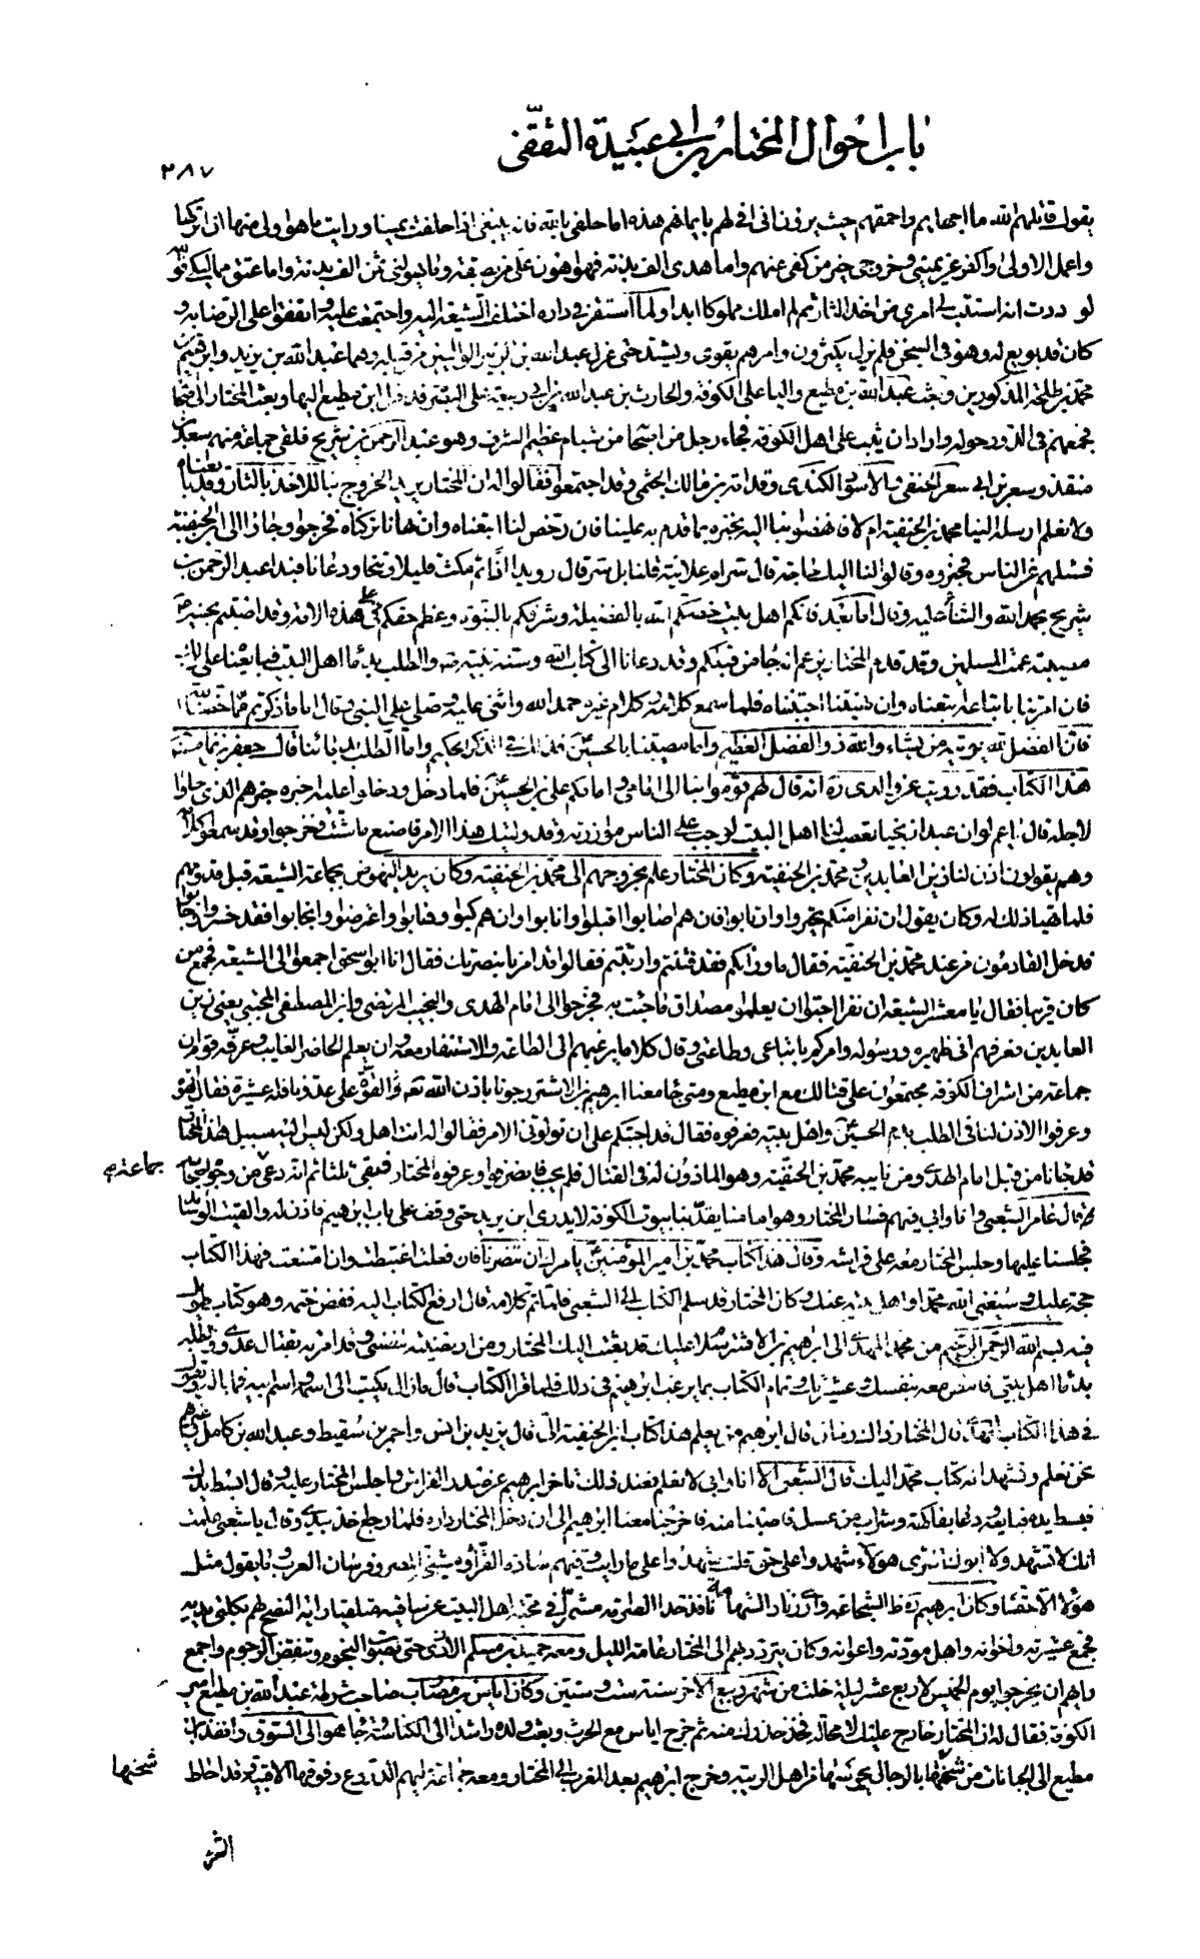 باب احوال المختار بن ابي عبيدة الثقفي
٣٨٧
يقول قاتلهم الله ما اجهلهم واحمقهم حيث يرون اني افي لهم بايمانهم هذه اما حلفي بالله فانه ينبغي اذا حلفت يمينا ورايت ما هو اولى منها ان اتركها
واعمل الاولى واكفر عن يميني وخروجي خير من كفي عنهم واما هدى الف بدنة فهو اهون علي من بصقة وما يهولني ثمن الف بدنة واما عتق مماليكي فو الله
لوددت انه استتب لي امري من اخذ الثار ثم لم املك مملوكا ابدا ولما استقر في داره اختلف الشيعة اليه واجتمعت عليه واتفقوا على الرضا به و
كان قد بويع له وهو في السجن فلم يزل يكثرون وامرهم يقوى ويشتد حتى عزل عبد الله بن الزبير الواليين من قبله وهما عبد الله بن يزيد وابراهيم بن
محمد بن طلحة المذكورين وبعث عبد الله بن مطيع واليا على الكوفة والحارث بن عبد الله بن ابي ربيعة على البصرة فدخل ابن مطيع اليها وبعث المختار الى اصحابه
فجمعهم في الدور حوله واراد ان يثب على اهل الكوفة فجاء رجل من اصحابه من شبام عظيم الشرف وهو عبد الرحمن بن شريح فلقي جماعة منهم سعد بن
منقذ وسعر بن ابي سعر الحنفي والاسود الكندي وقدامة بن مالك الجشمي وقد اجتمعوا فقالوا له ان المختار يريد الخروج بنا للاخذ بالثار وقد بايعناه
ولا نعلم ارسله الينا محمد بن الحنفية ام لا فانهضوا بنا اليه نخبره بما قدم به علينا فان رخص لنا اتبعناه وان نهانا تركناه فخرجوا وجاؤا الى ابن الحنفية
فسئلهم عن الناس فخبروه وقالوا لنا اليك حاجة قال سر ام علانية قلنا بل سر قال رويدا اذا ثم مكث قليلا وتنحى ودعانا فبدا عبد الرحمن بن
شريح بحمد الله والثناء عليه وقال اما بعد فانكم اهل بيت خصكم الله بالفضيلة وشرفكم بالنبوة وعظم حقكم على هذه الامة وقد اصبتم بحسين
مصيبة عمت المسلمين وقد قدم المختار يزعم انه جاء من قبلكم وقد دعانا الى كتاب الله وسنة نبيه والطلب بدماء اهل البيت فبايعناه على ذلك
فان امرتنا باتباعه اتبعناه وان نهيتنا اجتنبناه فلما سمع كلامه وكلام غيره حمد الله واثنى عليه وصلى على النبي وقال اما ما ذكرتم مما خصنا الله
فان الفضل لله يؤتيه من يشاء والله ذو الفضل العظيم واما مصيبتنا بالحسين فذلك في الذكر الحكيم واما الطلب بدمائنا قال جعفر بن نما مصنف
هذا الكتاب فقد رويت عن والدي ره انه قال لهم قوموا بنا الى امامي وامامكم علي بن الحسين فلما دخل ودخلوا عليه اخبره خبرهم الذي جاؤا
لاجله قال يا عم لو ان عبدا زنجيا تعصب لنا اهل البيت لوجب على الناس موازرته وقد وليتك هذا الامر فاصنع ما شئت فخرجوا وقد سمعوا كلامه
وهم يقولون اذن لنا زين العابدين ومحمد بن الحنفية وكان المختار علم بخروجهم الى محمد بن الحنفية وكان يريد النهوض بجماعة الشيعة قبل قدومهم
فلم يتهيا ذلك له وكان يقول ان نفرا منكم تحيروا وارتابوا فان هم اصابوا اقبلوا وانابوا وان هم كبوا وهابوا واعترضوا وانجابوا فقد خسروا وخابوا
فدخل القادمون من عند محمد بن الحنفية فقال ما وراءكم فقد فتنتم وارتبتم فقالوا قد امرنا بنصرتك فقال انا ابو اسحق اجمعوا الى الشيعة فجمع من
كان قريبا فقال يا معشر الشيعة ان نفرا احبوا ان يعلموا مصداق ما جئت به فخرجوا الى امام الهدى والنجيب المرتضى وابن المصطفى المجتبى يعني زين
العابدين فعرفهم اني ظهيره ورسوله وامركم باتباعي وطاعتي وقال كلاما يرغبهم الى الطاعة والاستنفار معه وان يعلم الحاضر الغايب وعرفه قوم ان
جماعة من اشراف الكوفة مجتمعون على قتالك مع ابن مطيع ومتى جاء معنا ابراهيم بن الاشتر رجونا باذن الله تعه القوة على عدونا فله عشيرة فقال القوه
وعرفوا الاذن لنا في الطلب بدم الحسين واهل بيته فعرفوه فقال قد اجبتكم على ان تولوني الامر فقالوا له انت اهل ولكن ليس اليه سبيل هذا المختار
قد جاءنا من قبل امام الهدى ومن نايبه محمد بن الحنفية وهو الماذون له في القتال فلم يجب فانصرفوا وعرفوه المختار فبقي ثلثا ثم انه دعى من وجوه اصحابه
جماعة صح
قال عامر الشعبي وانا وابي فيهم فسار المختار وهو امامنا يقد بنا بيوت الكوفة لا يدرى اين يريد حتى وقف على باب ابراهيم فاذن له والقيت الوسائد
فجلسنا عليها وجلس المختار معه على فراشه وقال هذا كتاب محمد بن امير المؤمنين يأمرك ان تنصرنا فان فعلت اغتبطت وان امتنعت فهذا الكتاب
حجة عليك وسيغني الله محمدا واهل بيته عنك وكان المختار قد سلم الكتاب الى الشعبي فلما تم كلامه قال ادفع الكتاب اليه ففض ختمه وهو كتاب طويل
فيه بسم الله الرحمن الرحيم من محمد المهدي الى ابراهيم بن الاشتر سلام عليك قد بعثت اليك المختار ومن ارتضيته لنفسي وقد امرته بقتال عدوي والطلب
بدماء اهل بيتي فامض معه بنفسك وعشيرتك وتمام الكتاب بما يرغب ابراهيم في ذلك فلما قرأ الكتاب قال ما زال يكتب الي اسمه واسم ابيه فما باله ويقول
في هذا الكتاب المهدي قال المختار ذاك زمان قال ابراهيم من يعلم هذا كتاب ابن الحنفية الي قال يزيد بن انس واحمر بن سقيط وعبد الله بن كامل وغيرهم
نحن نعلم ونشهد انه كتاب محمد اليك قال الشعبي الا انا وابي لا نعلم فعند ذلك تاخر ابراهيم عن صدر الفراش واجلس المختار عليه وقال ابسط يدك
فبسط يده فبايعه ودعا بفاكهة وشراب من عسل فاصبنا منه فاخرجنا معنا ابراهيم الى ان دخل المختار داره فلما رجع اخذ بيدي وقال يا شعبي علمت
انك لا تشهد ولا ابوك افترى هؤلاء شهدوا على حق قلت شهدوا على ما رايت وفيهم سادة القراء ومشيخة المصر وفرسان العرب وما يقول مثل
هؤلاء الا حقا وكان ابراهيم ره ظ الشجاعة وارى زناد الشهامة نافذ حد الصرامة مشمرا في محبة اهل البيت عن ساقيه متلقيا راية النصح لهم بكلتي يديه
فجمع عشيرته واخوانه واهل مودته واعوانه وكان يتردد بهم الى المختار عامة الليل ومعه حميد بن مسلم الازدي حتى تصوب النجوم وتنقض الرجوم واجمع
رايهم ان يخرجوا يوم الخميس لاربع عشر ليلة خلت من شهر ربيع الاخر سنة ست وستين وكان اياس بن مضارب صاحب شرطة عبد الله بن مطيع امير
الكوفة فقال له ان المختار خارج عليك لا محالة فخذ حذرك منه ثم خرج اياس مع الحرث وبعث ولده راشدا الى الكناسة وجاء هو الى السوق وانفذ ابن
مطيع الى الجبانات من شحنها بالرجال يحرسها من اهل الريبة وخرج ابراهيم بعد المغرب الى المختار ومعه جماعة عليهم الدروع وفوقها الاقبية وقد احاط
شحنها
الشرط